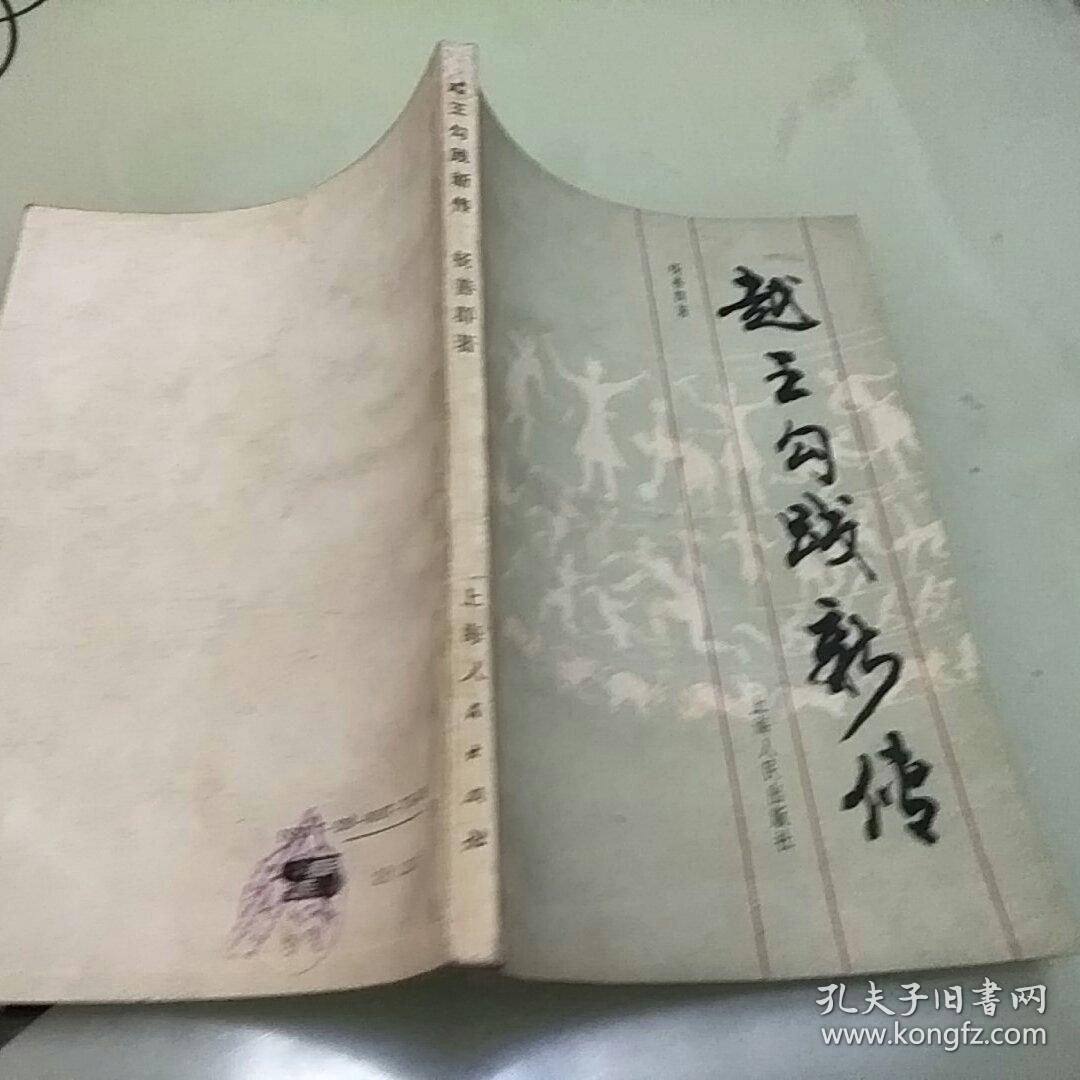 越王勾践新传
上海人民出版社
越王勾践新传 杨善群著 上海人民出版社
孔夫子旧書网
www.kongfz.com